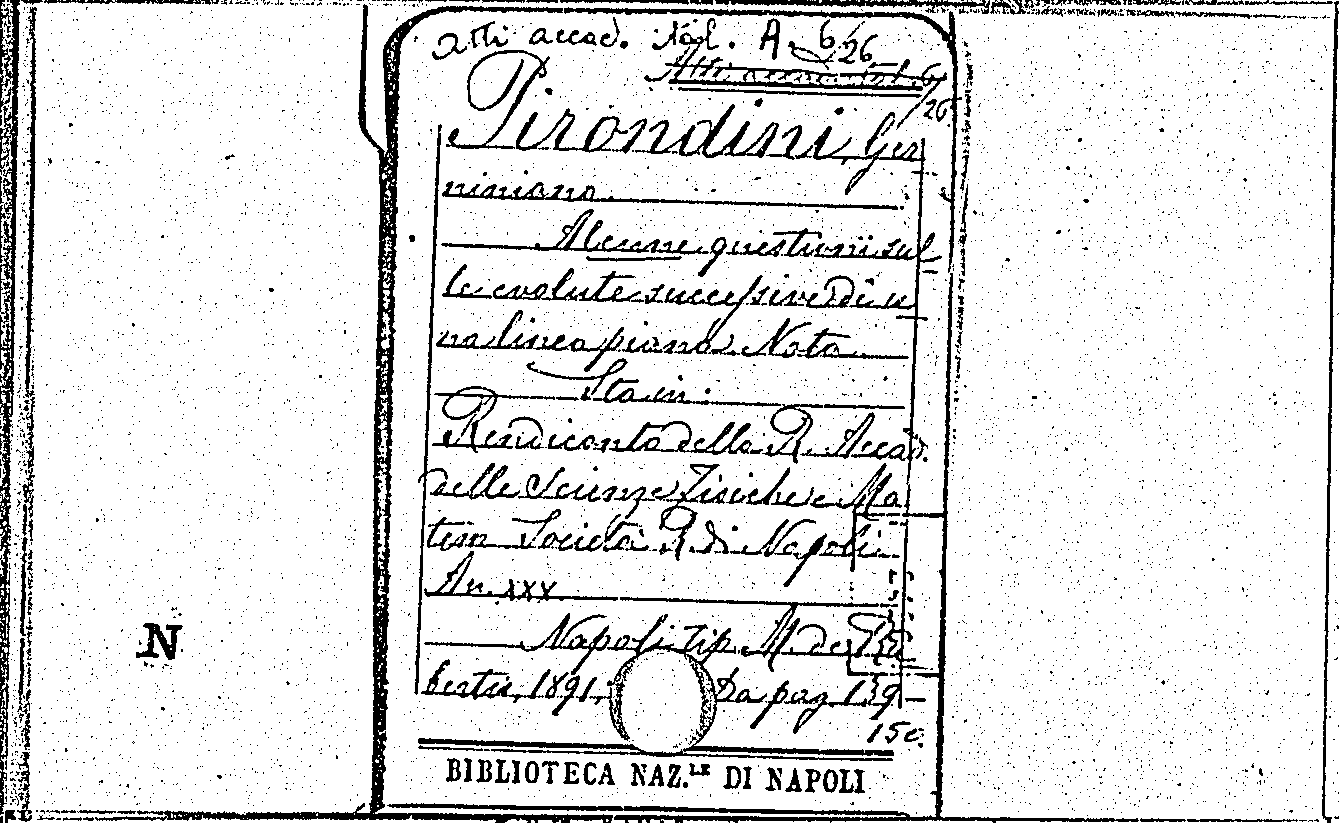 Atti accad. Nap. A. 6/26
Atti accad. Nap. 6/26
Pirondini, Ger
niniano
Alcune questioni sul
le evolute successive di u
na linea piana. Nota
Sta in:
Rendiconto della R. Accad.
delle Scienze Fisiche e Ma
tem Società R. di Napoli
An. XXX
Napoli tip. M. de Ru
bertis, 1891, Da pag 139-
150.
N
BIBLIOTECA NAZ.LE DI NAPOLI